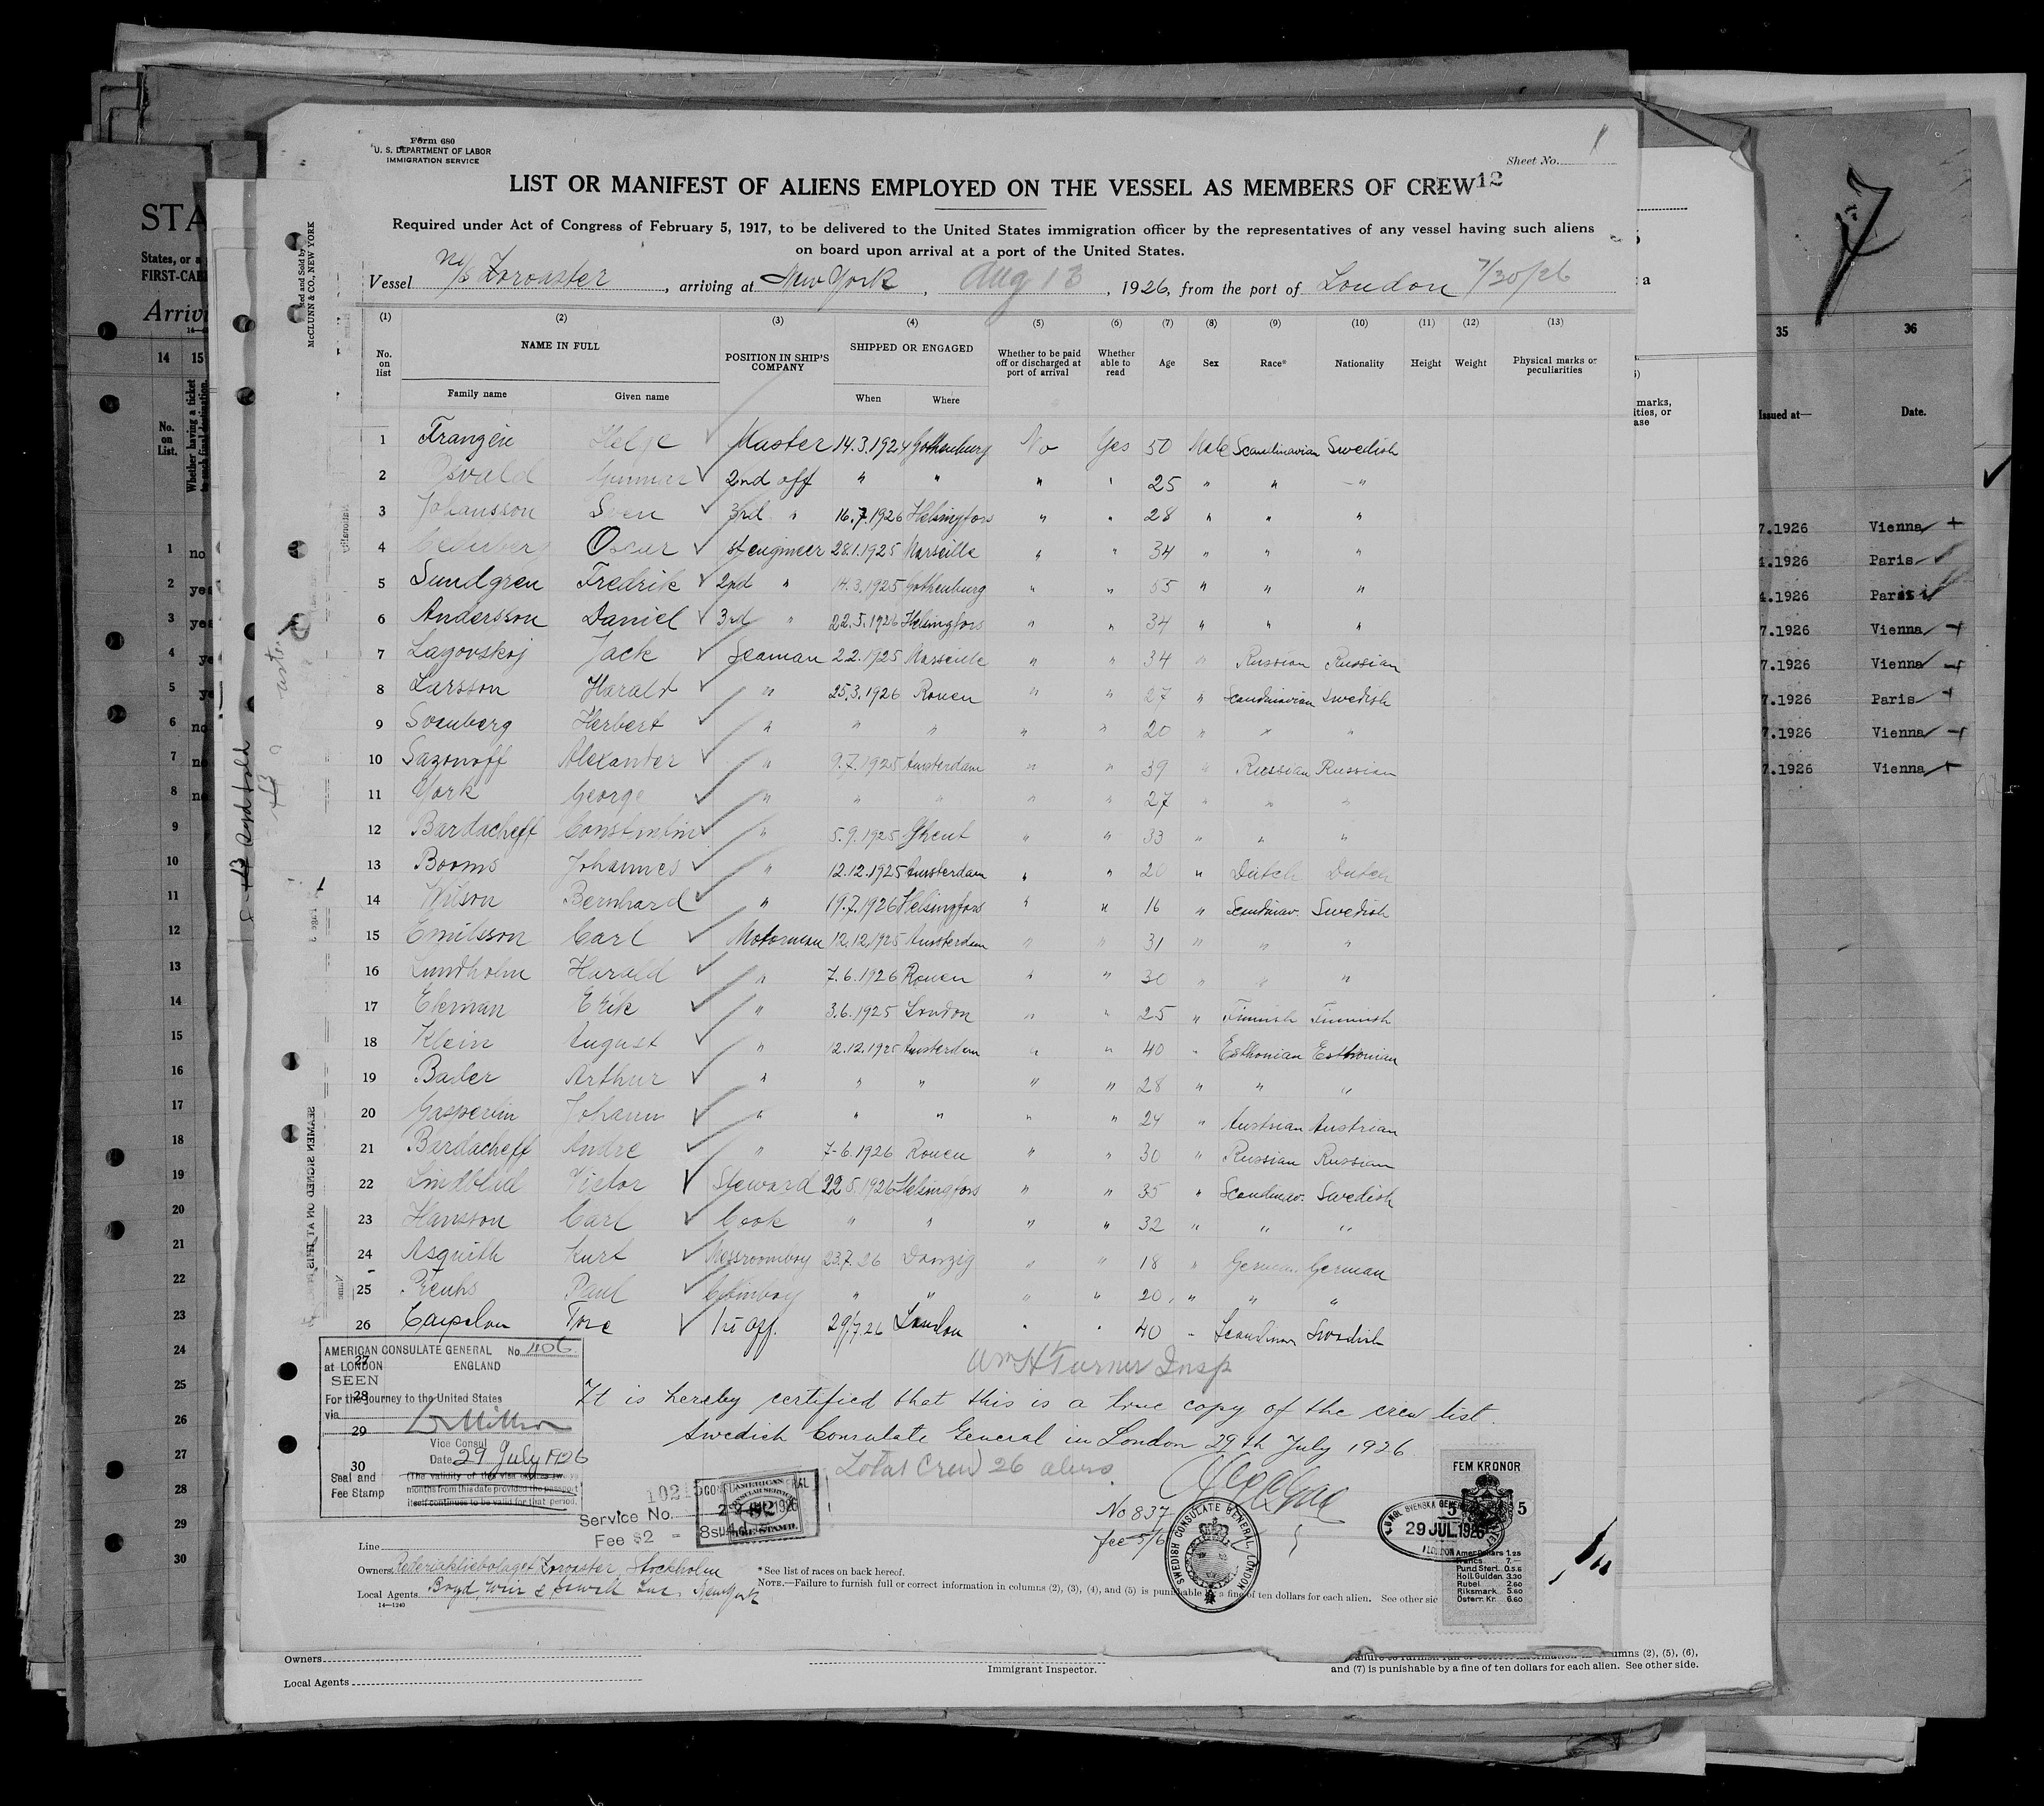 Form 680
U. S. DEPARTMENT OF LABOR
IMMIGRATION SERVICE
Sheet No. 1
LIST OR MANIFEST OF ALIENS EMPLOYED ON THE VESSEL AS MEMBERS OF CREW 12
Required under Act of Congress of February 5, 1917, to be delivered to the United States immigration officer by the representatives of any vessel having such aliens
on board upon arrival at a port of the United States.
Vessel M/S Zoroaster, arriving at New York, Aug 13, 1926, from the port of London 7/30/26
(1) (2) (3) (4) (5) (6) (7) (8) (9) (10) (11) (12) (13)
No. on list NAME IN FULL POSITION IN SHIP'S COMPANY SHIPPED OR ENGAGED Whether to be paid off or discharged at port of arrival Whether able to read Age Sex Race* Nationality Height Weight Physical marks or peculiarities
Family name Given name When Where
1 Franzén Helge Master 14.3.1924 Gothenburg No Yes 50 Male Scandinavian Swedish
2 Osvald Gunnar 2nd off " " " " 25 " " "
3 Johansson Sven 3rd " 16.7.1926 Helsingfors " " 28 " " "
4 Cederberg Oscar 1st engineer 28.1.1925 Marseille " " 34 " " "
5 Sundgren Fredrik 2nd " 14.3.1925 Gothenburg " " 55 " " "
6 Andersson Daniel 3rd " 22.5.1926 Helsingfors " " 34 " " "
7 Lagovskoj Jack Seaman 2.2.1925 Marseille " " 34 " Russian Russian
8 Larsson Harald " 25.3.1926 Rouen " " 27 " Scandinavian Swedish
9 Svenberg Herbert " " " " " 20 " " "
10 Sazonoff Alexander " 9.7.1925 Amsterdam " " 39 " Russian Russian
11 York George " " " " " 27 " " "
12 Bardacheff Constantin " 5.9.1925 Ghent " " 33 " " "
13 Booms Johannes " 12.12.1925 Amsterdam " " 20 " Dutch Dutch
14 Wilson Bernhard " 19.7.1926 Helsingfors " " 16 " Scandinav. Swedish
15 Emilsson Carl Motorman 12.12.1925 Amsterdam " " 31 " " "
16 Lundholm Harald " 7.6.1926 Rouen " " 30 " " "
17 Ekman Erik " 3.6.1925 London " " 25 " Finnish Finnish
18 Klein August " 12.12.1925 Amsterdam " " 40 " Esthonian Esthonian
19 Bader Arthur " " " " " 28 " " "
20 Gasperlin Johann " " " " " 24 " Austrian Austrian
21 Bardacheff André " 7-6.1926 Rouen " " 30 " Russian Russian
22 Lindblad Victor Steward 22.5.1926 Helsingfors " " 35 " Scandinav. Swedish
23 Hansson Carl Cook " " " " 32 " " "
24 Asquith Kurt Messroomboy 23.7.26 Danzig " " 18 " German German
25 Paul Cabinboy " " " " 20 " " "
26 Tore 1st off. 29/7.26 London " " 40 " Scandinav Swedish
27
28
29
30
Wm H Turner Insp
It is hereby certified that this is a true copy of the crew list.
Swedish Consulate General in London 29th July 1926.
Total Crew 26 aliens
No 837
fee 5/6
AMERICAN CONSULATE GENERAL No. 1106
at LONDON ENGLAND
SEEN
For the journey to the United States
via
Vice Consul
Date 29 July 1926
Seal and Fee Stamp
(The validity of this visa expires two
months from this date provided the passport
itself continues to be valid for that period.
Service No.
Fee $2 =
AMERICAN
CONSULAR SERVICE
$2
FEE STAMP
SWEDISH CONSULATE GENERAL LONDON
FEM KRONOR
5 5
29 JUL.1926
I LONDON
Amer. Dollars 1.25
Francs 7.—
Pund Sterl. 0.5.6
Holl. Gulden 3.30
Rubel 2.60
Riksmark 5.60
Österr. Kr. 6.60
Line
Owners Rederiaktiebolaget Zoroaster, Stockholm
Local Agents Boyd, Weir & Sewell Inc. New York
14—1240
*See list of races on back hereof.
NOTE.—Failure to furnish full or correct information in columns (2), (3), (4), and (5) is punishable by a fine of ten dollars for each alien. See other sid
Owners
Local Agents
Immigrant Inspector.
umns (2), (5), (6),
and (7) is punishable by a fine of ten dollars for each alien. See other side.
McCLUNN & CO., NEW YORK
SEAMEN SIGNED ON AT THIS
STA
States, or a
FIRST-CAB
Arrivi
14 15
No. on List.
Whether having a ticket
1 no
2 yes
3 yes
4 ye
5 ye
6 no
7 no
8 no
9
10
11
12
13
14
15
16
17
18
19
20
21
22
23
24
25
26
27
28
29
30
7
35 36
Issued at— Date.
marks,
ities, or
ase
7.1926 Vienna
.1926 Paris
4.1926 Paris
7.1926 Vienna
7.1926 Vienna
7.1926 Paris
7.1926 Vienna
7.1926 Vienna